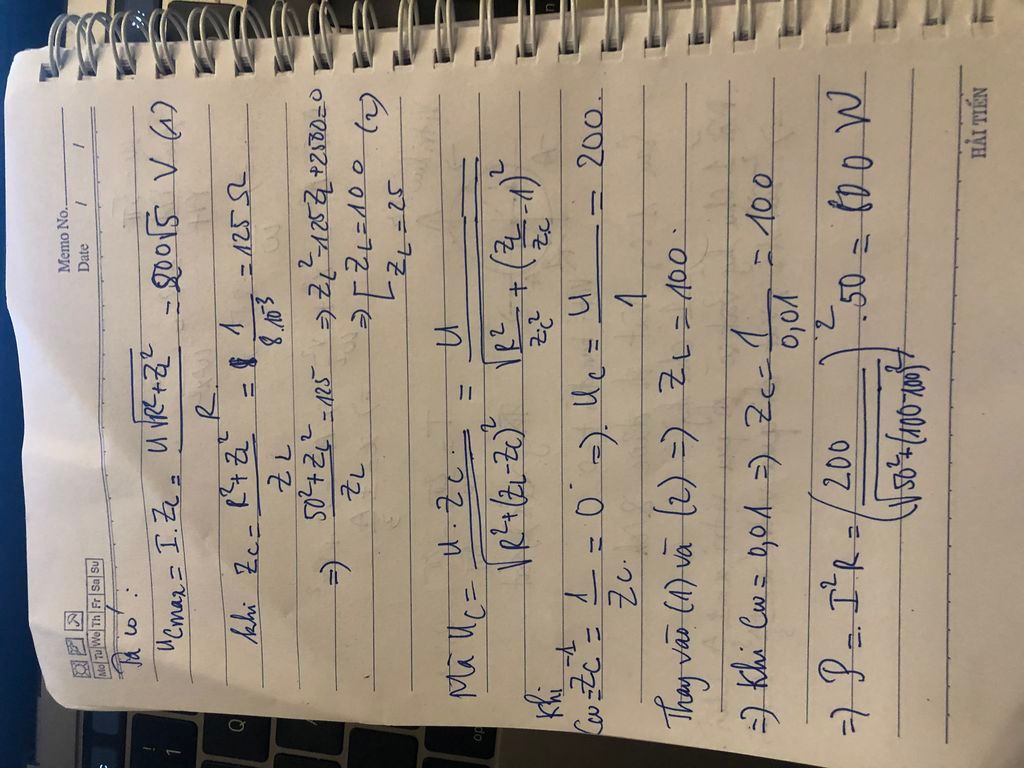 Memo No.
Date / /
Mo Tu We Th Fr Sa Su
Ta có:
UCmax = I.ZC = U√(R²+ZL²) / R = 200√5 V (1)
khi ZC = (R²+ZL²) / ZL = 1 / 8.10⁻³ = 125 Ω
=> (50²+ZL²) / ZL = 125 => ZL² - 125ZL + 2500 = 0
=> [ ZL = 100 (2)
ZL = 25
Mà UC = U.ZC / √(R²+(ZL-ZC)²) = U / √(R²/ZC² + (ZL/ZC - 1)²)
Khi
Cω = ZC⁻¹ = 1/ZC = 0 => UC = U/1 = 200.
Thay vào (1) và (2) => ZL = 100.
=> Khi Cω = 0,01 => ZC = 1 / 0,01 = 100
=> P = I²R = (200 / √(50²+(100-100)²))² .50 = 800 W
HẢI TIẾN
Q
!
1